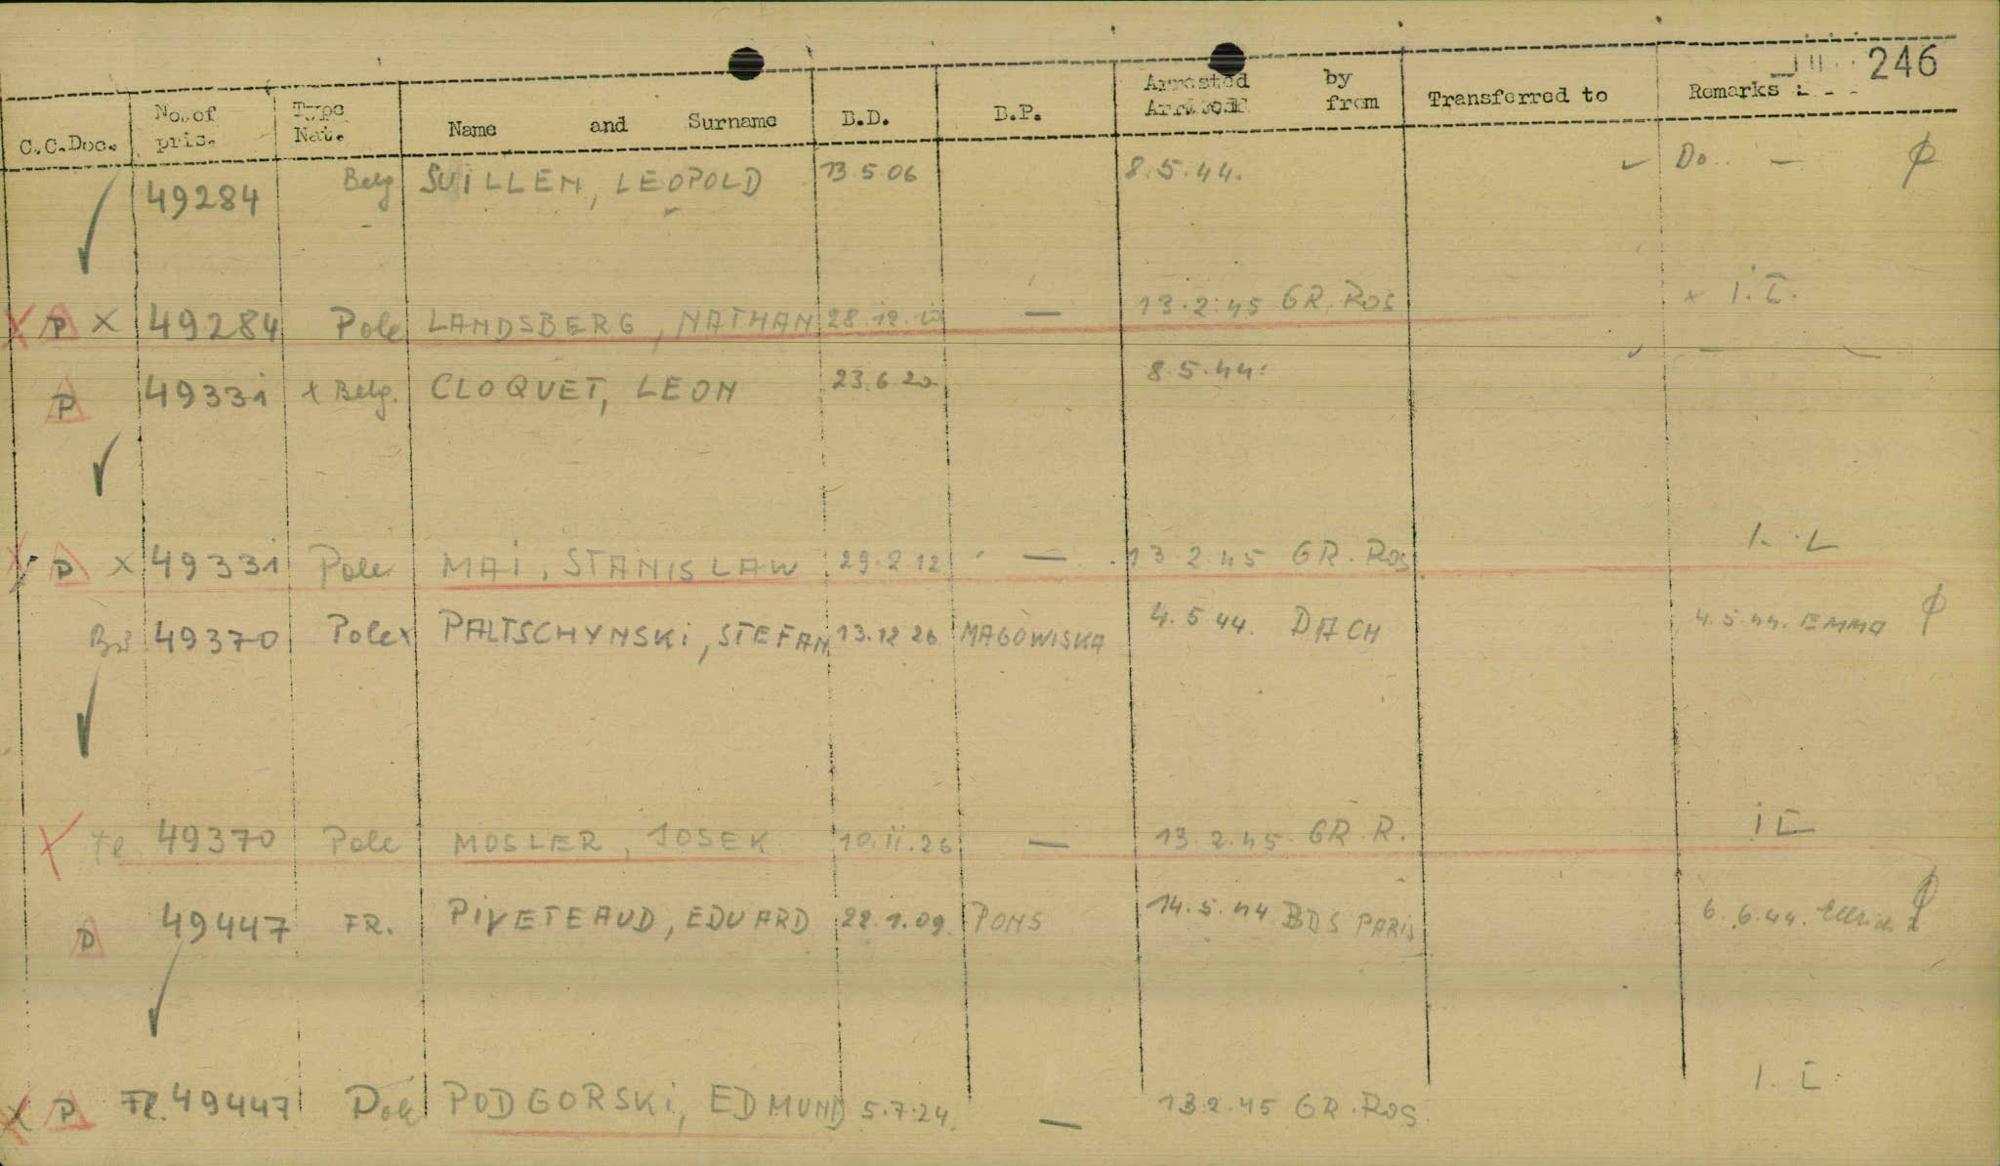 246
C.C.Doc. No.of pris. Type Nat. Name and Surname B.D. B.P. Arrested by from Transferred to Remarks
49284 Belg SUILLEN, LEOPOLD 13.5.06 8.5.44. Do.. —
X P X 49284 Pole LANDSBERG, NATHAN 28.12. — 13.2.45 GR.ROS x I.C.
P 49331 x Belg. CLOQUET, LEON 23.6.20 8.5.44.
X P X 49331 Pole MAI, STANISLAW 29.2.12 — 13.2.45 GR.ROS
49370 Pole x PALTSCHYNSKI, STEFAN 13.12.26 MAGOWISKA 4.5.44. DACH 4.5.44. EMMA
X Fl. 49370 Pole MOSLER, JOSEK 10.11.26 — 13.2.45 GR.R. I C
P 49447 FR. PIVETEAUD, EDUARD 22.1.09 PONS 14.5.44 BDS PARIS 6.6.44. Ellrich
X P Fl. 49447 Pole PODGORSKI, EDMUND 5.7.24. — 13.2.45 GR.ROS. I.C.